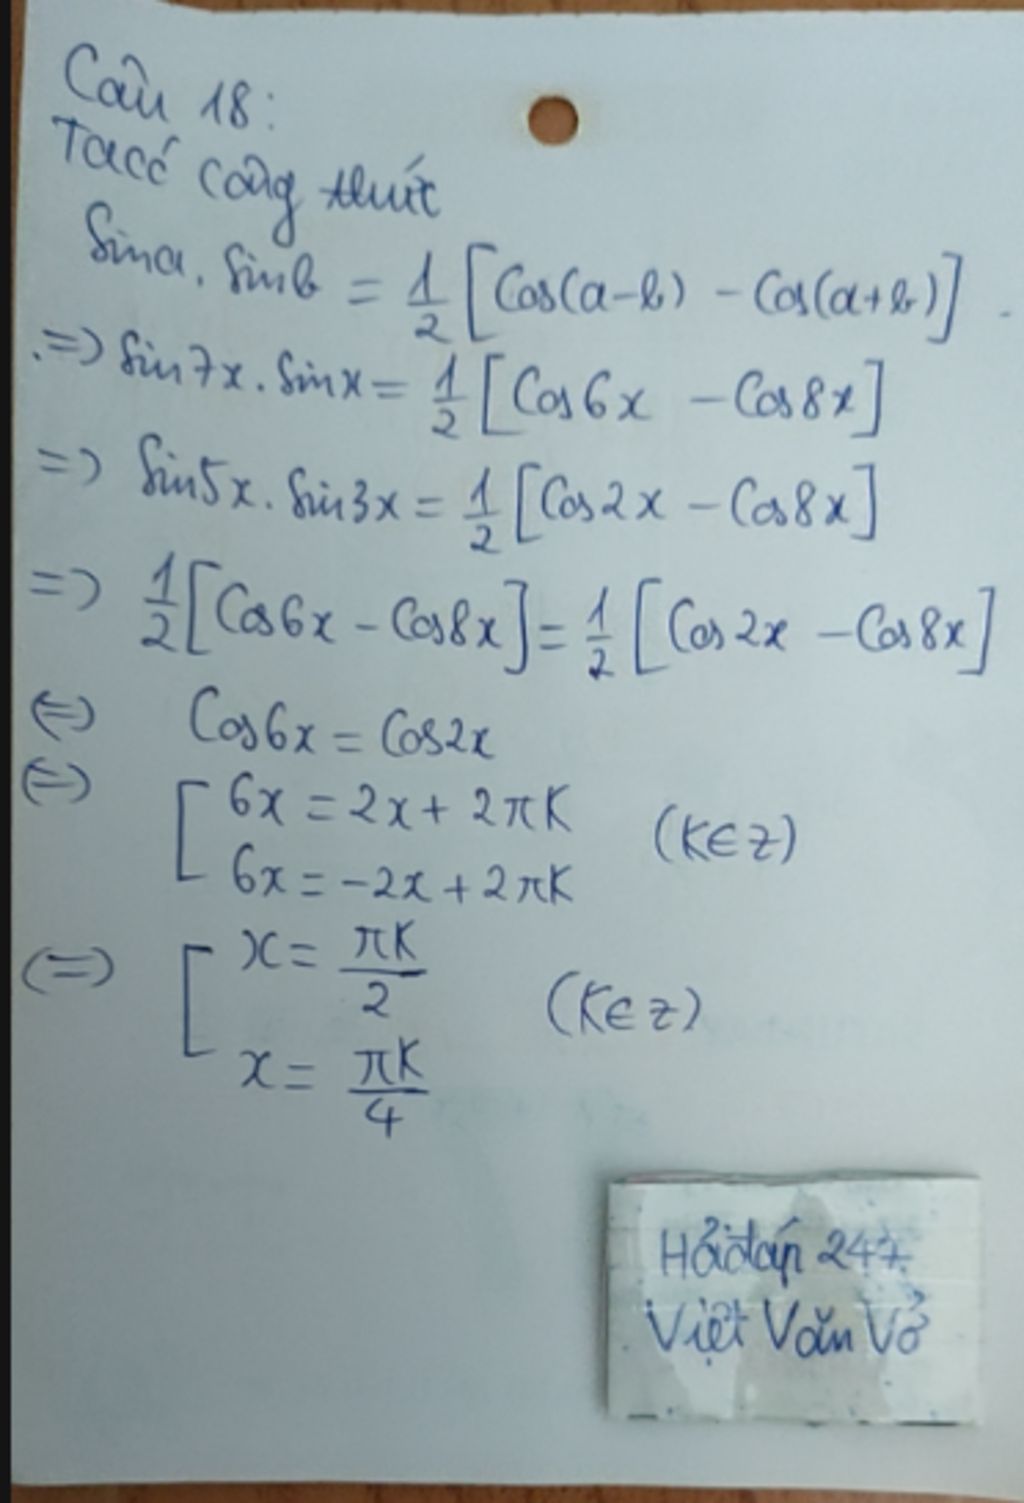 Câu 18:
Ta có công thức
Sina. Sinb = 1/2 [Cos(a-b) - Cos(a+b)].
=> Sin7x. Sinx = 1/2 [Cos6x - Cos8x]
=> Sin5x. Sin3x = 1/2 [Cos2x - Cos8x]
=> 1/2 [Cos6x - Cos8x] = 1/2 [Cos2x - Cos8x]
(=) Cos6x = Cos2x
(=) [ 6x = 2x + 2πK (K∈Z)
6x = -2x + 2πK
(=) [ x = πK/2 (K∈Z)
x = πK/4
Hỏi đáp 247
Việt Văn Vở